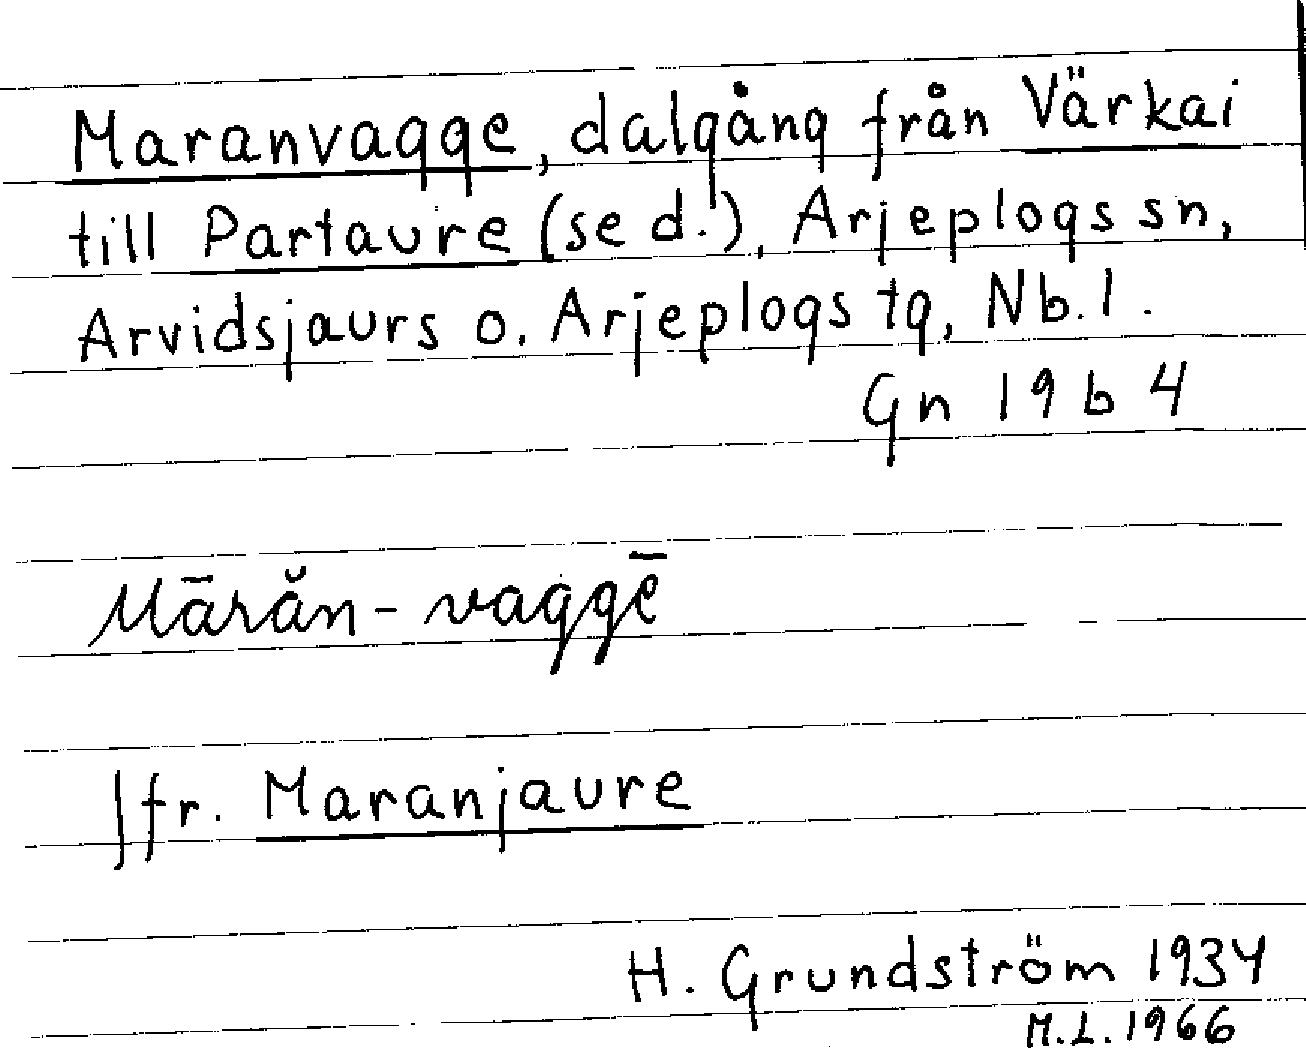 Maranvagge, dalgång från Värkai
till Partaure (se d.!), Arjeplogs sn,
Arvidsjaurs o. Arjeplogs tg, Nb.l.
Gn 19 b 4
Mārăn-vaggē
Jfr. Maranjaure
H. Grundström 1934
M.L. 1966